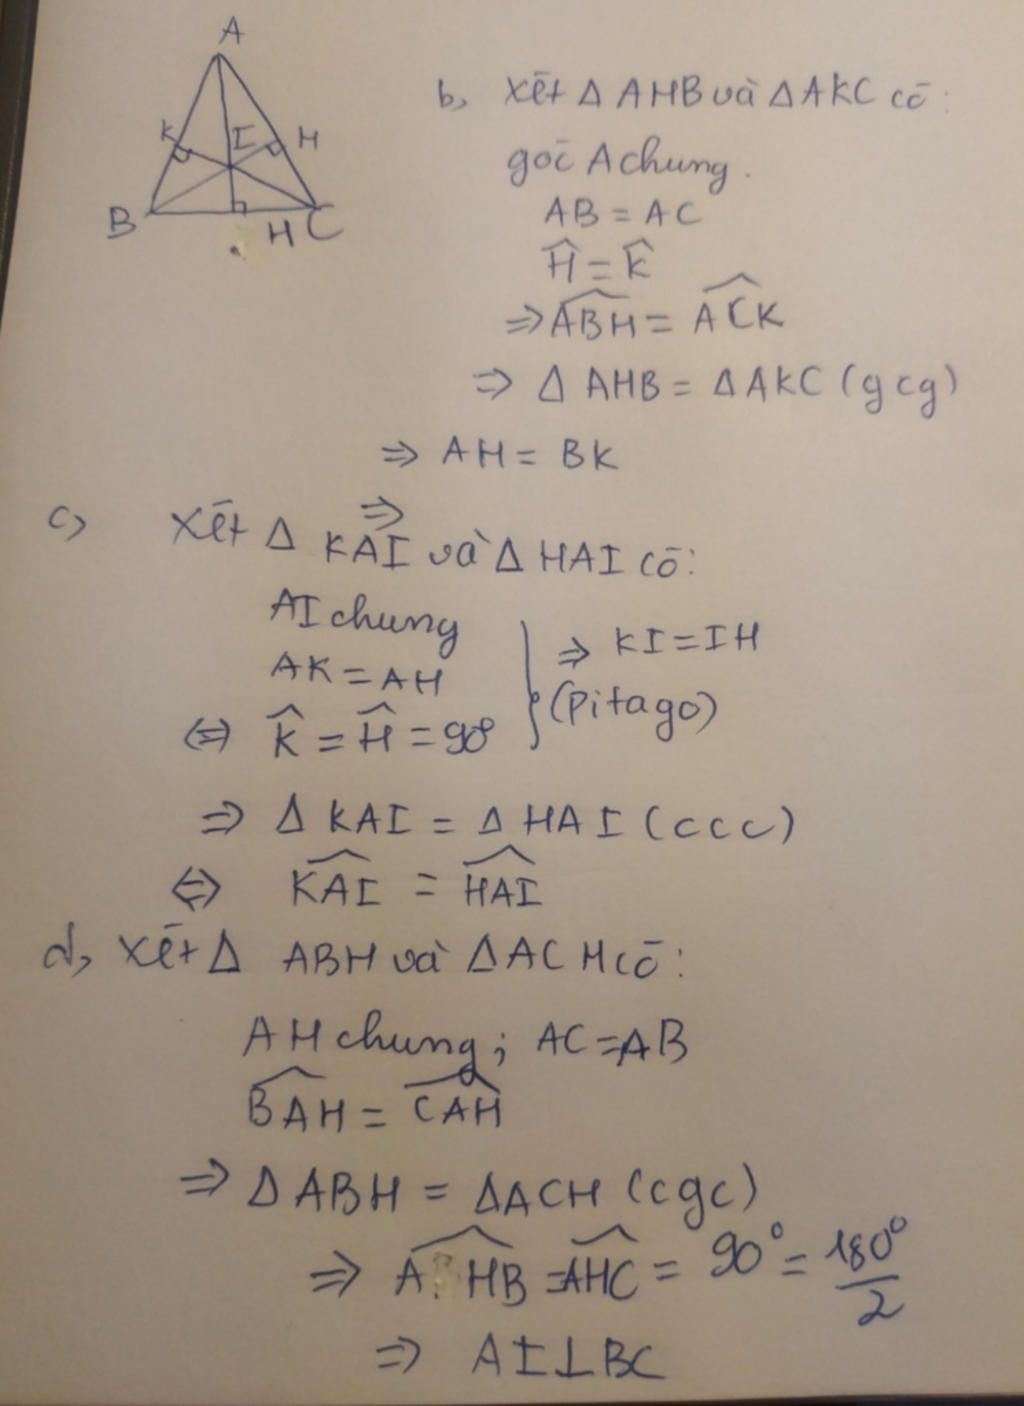 A
K I H
B H C
b, Xét Δ AHB và Δ AKC có:
góc A chung.
AB = AC
Ĥ = K̂
⇒ \widehat{ABH} = \widehat{ACK}
⇒ Δ AHB = Δ AKC (gcg)
⇒ AH = BK
⇒
c, Xét Δ KAI và Δ HAI có:
AI chung
AK = AH } ⇒ KI = IH
(Pitago)
⇔ K̂ = Ĥ = 90°
⇒ Δ KAI = Δ HAI (ccc)
⇔ \widehat{KAI} = \widehat{HAI}
d, Xét Δ ABH và Δ ACH có:
AH chung; AC = AB
\widehat{BAH} = \widehat{CAH}
⇒ Δ ABH = Δ ACH (cgc)
⇒ \widehat{AHB} = \widehat{AHC} = 90° = 180°/2
⇒ AI ⊥ BC